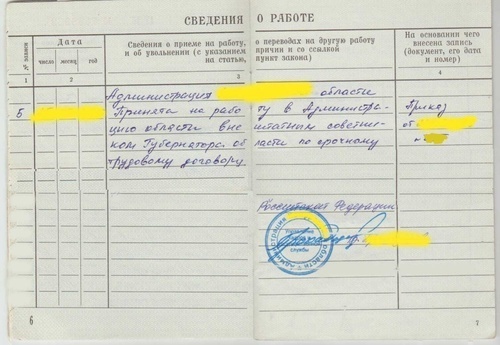 СВЕДЕНИЯ О РАБОТЕ
№ записи
Дата
число месяц год
Сведения о приеме на работу, о переводах на другую работу
и об увольнении (с указанием причин и со ссылкой
на статью, пункт закона)
На основании чего
внесена запись
(документ, его дата
и номер)
1 2 3 4
Администрация области
5 Принята на работу в Администра- Приказ
цию области внештатным советни- от
ком Губернатора области по срочному №
трудовому договору.
Российской Федерации
6 7